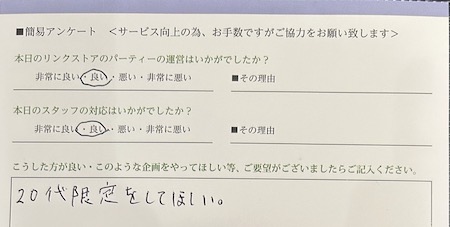 ■簡易アンケート　＜サービス向上の為、お手数ですがご協力をお願い致します＞
本日のリンクストアのパーティーの運営はいかがでしたか？
非常に良い・良い・悪い・非常に悪い　■その理由
本日のスタッフの対応はいかがでしたか？
非常に良い・良い・悪い・非常に悪い　■その理由
こうした方が良い・このような企画をやってほしい等、ご要望がございましたらご記入ください。
20代限定をしてほしい。